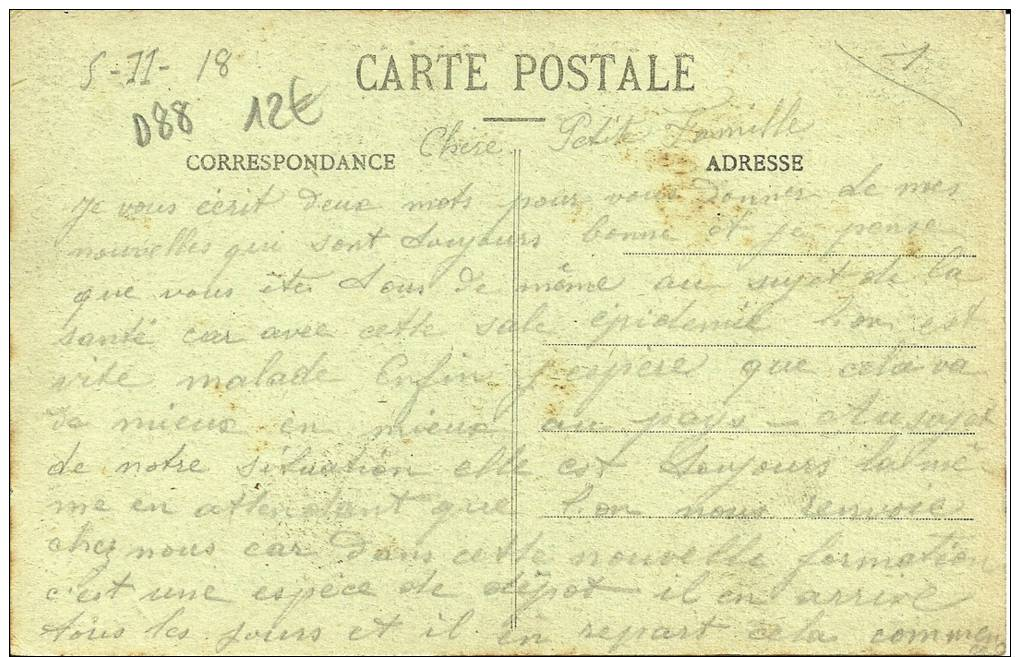 5-11-18
CARTE POSTALE
D88 12€
Chère Petite Famille
CORRESPONDANCE
ADRESSE
Je vous écrit deux mots pour vous donner de mes
nouvelles qui sont toujours bonne et je pense
que vous êtes tous de même au sujet de la
santé car avec cette sale épidemie lion est
vite malade Enfin j'espère que cela va
de mieux en mieux au pays - Au sujet
de notre situation elle est toujours la mê
me en attendant que lon nous renvoie
chez nous car dans cette nouvelle formation
c'est une espèce de dépot il en arrive
tous les jours et il en repart cela commen
ce